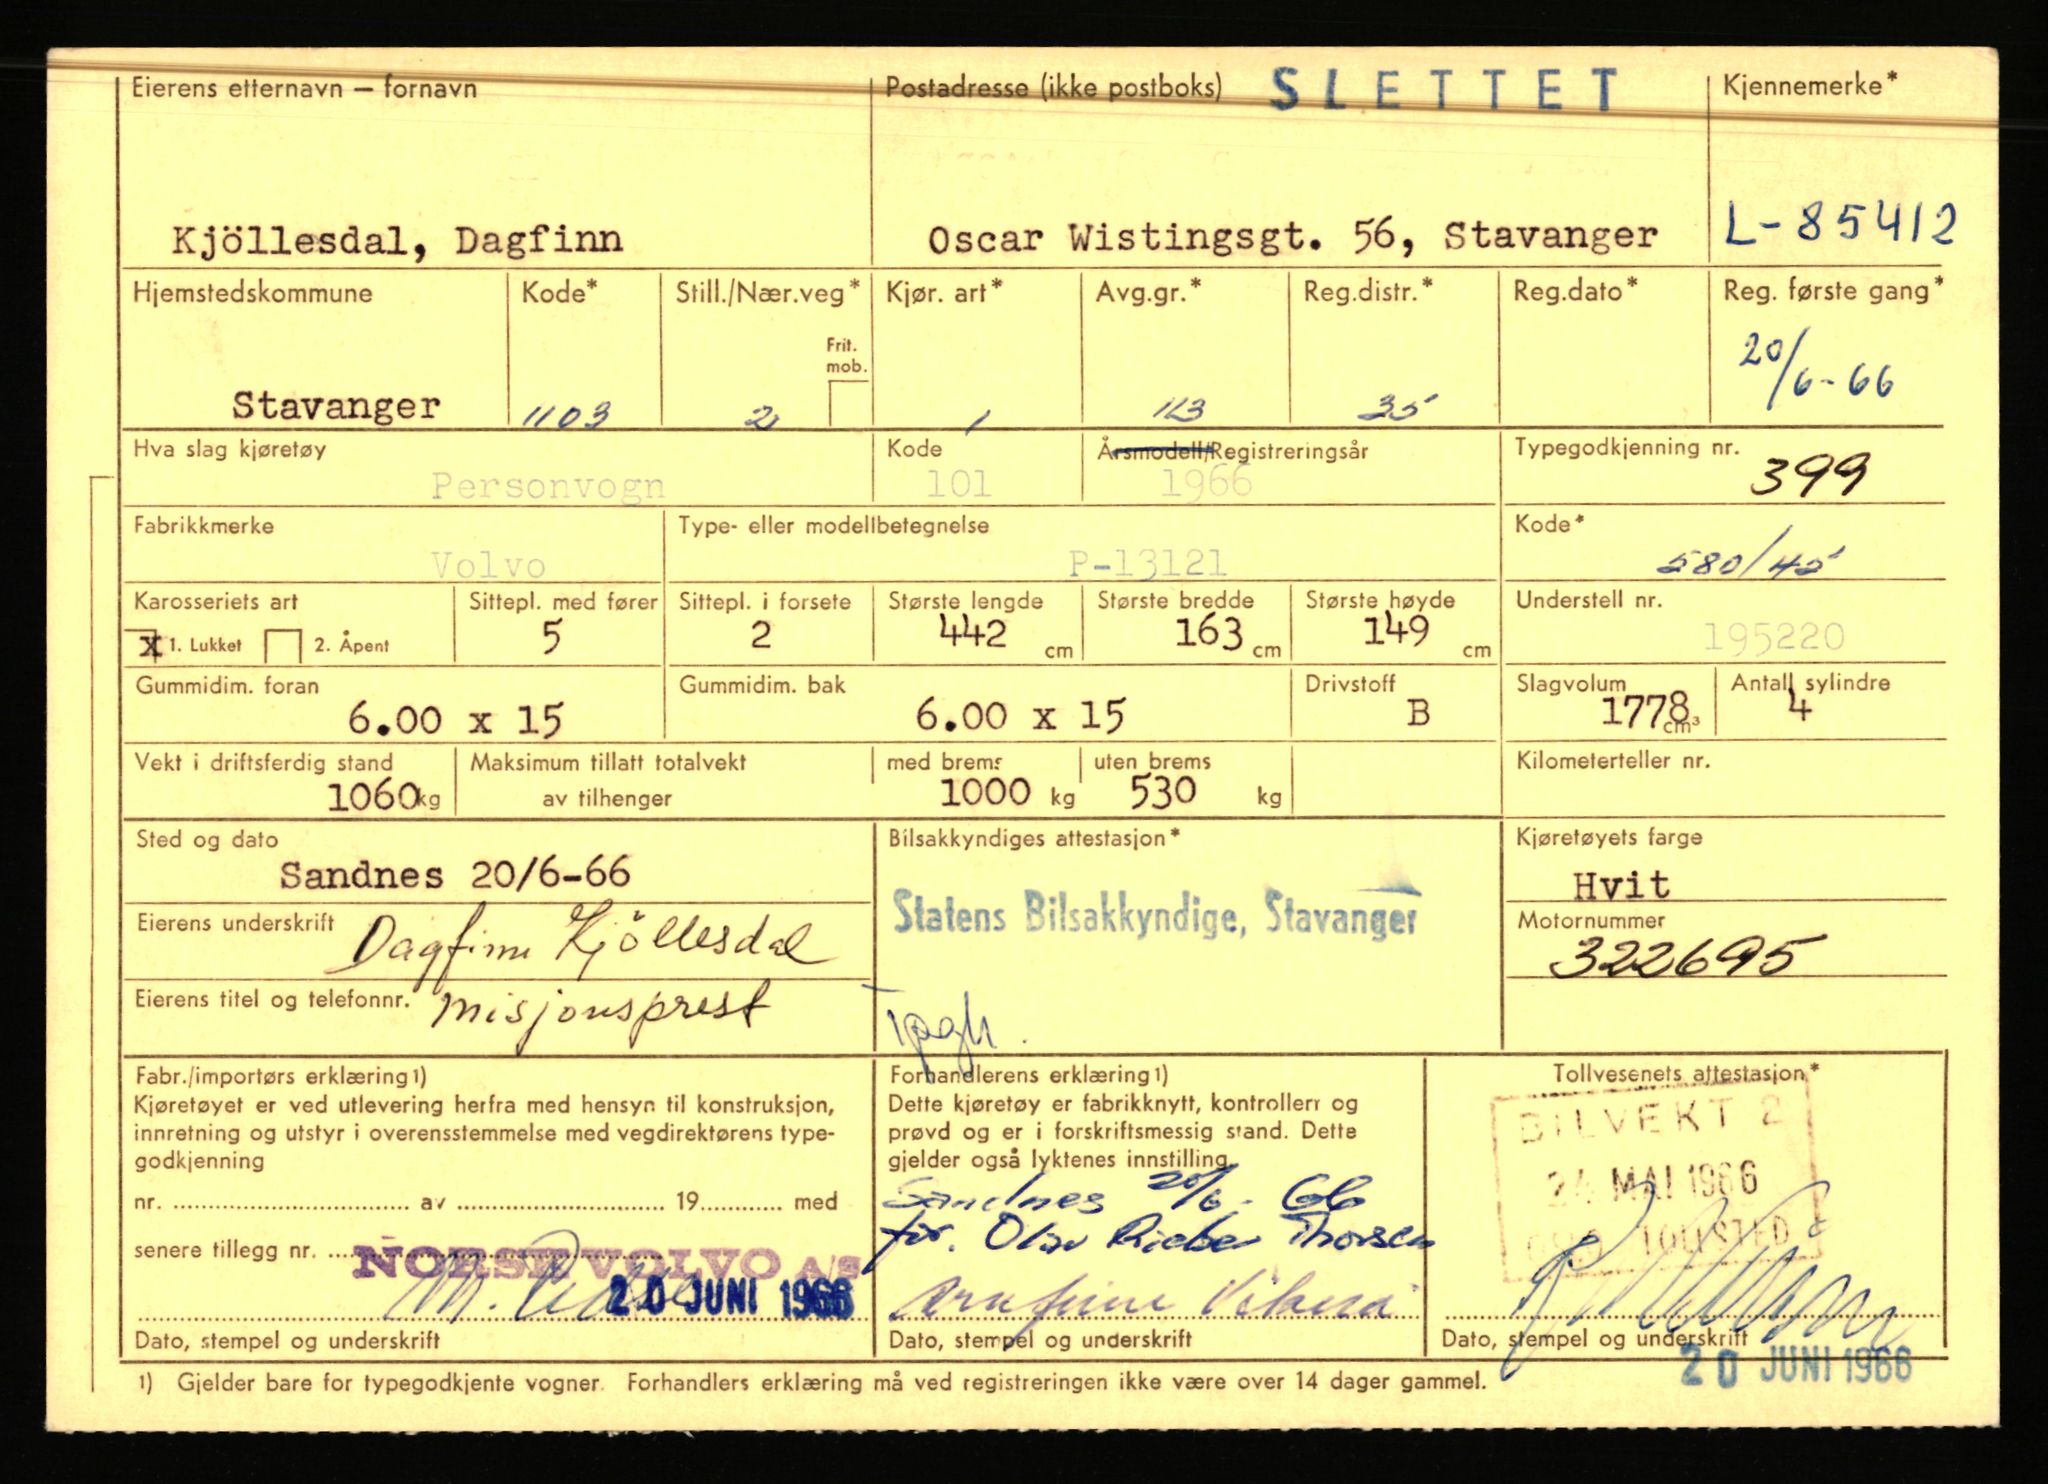 Eierens etternavn — fornavn Postadresse (ikke postboks) SLETTET Kjennemerke*
Kjöllesdal, Dagfinn Oscar Wistingsgt. 56, Stavanger L-85412
Hjemstedskommune Kode* Still./Nær.veg* Kjør. art* Avg.gr.* Reg.distr.* Reg.dato* Reg. første gang*
Frit. mob.
Stavanger 1103 2 1 113 35 20/6-66
Hva slag kjøretøy Kode Årsmodell/Registreringsår Typegodkjenning nr.
Personvogn 101 1966 399
Fabrikkmerke Type- eller modellbetegnelse Kode*
Volvo P-13121 580/45
Karosseriets art Sittepl. med fører Sittepl. i forsete Største lengde Største bredde Største høyde Understell nr.
x 1. Lukket 2. Åpent 5 2 442 cm 163 cm 149 cm 195220
Gummidim. foran Gummidim. bak Drivstoff Slagvolum Antall sylindre
6.00 x 15 6.00 x 15 B 1778 cm³ 4
Vekt i driftsferdig stand Maksimum tillatt totalvekt med brems uten brems Kilometerteller nr.
1060 kg av tilhenger 1000 kg 530 kg
Sted og dato Bilsakkyndiges attestasjon* Kjøretøyets farge
Sandnes 20/6-66 Hvit
Statens Bilsakkyndige, Stavanger
Eierens underskrift Dagfinn Kjöllesdal Motornummer
322695
Eierens titel og telefonnr. misjonsprest
Fabr./importørs erklæring1) Forhandlerens erklæring1) Tollvesenets attestasjon*
Kjøretøyet er ved utlevering herfra med hensyn til konstruksjon, Dette kjøretøy er fabrikknytt, kontrollert og BILVEKT 2
innretning og utstyr i overensstemmelse med vegdirektørens type- prøvd og er i forskriftsmessig stand. Dette
godkjenning gjelder også lyktenes innstilling
24 MAI 1966
nr. av 19 med Sandnes 20/6-66
for. Olav Rieber Thorsen
senere tillegg nr. NORSK VOLVO A/S
20 JUNI 1966
Dato, stempel og underskrift Dato, stempel og underskrift Dato, stempel og underskrift
20 JUNI 1966
1) Gjelder bare for typegodkjente vogner. Forhandlers erklæring må ved registreringen ikke være over 14 dager gammel.